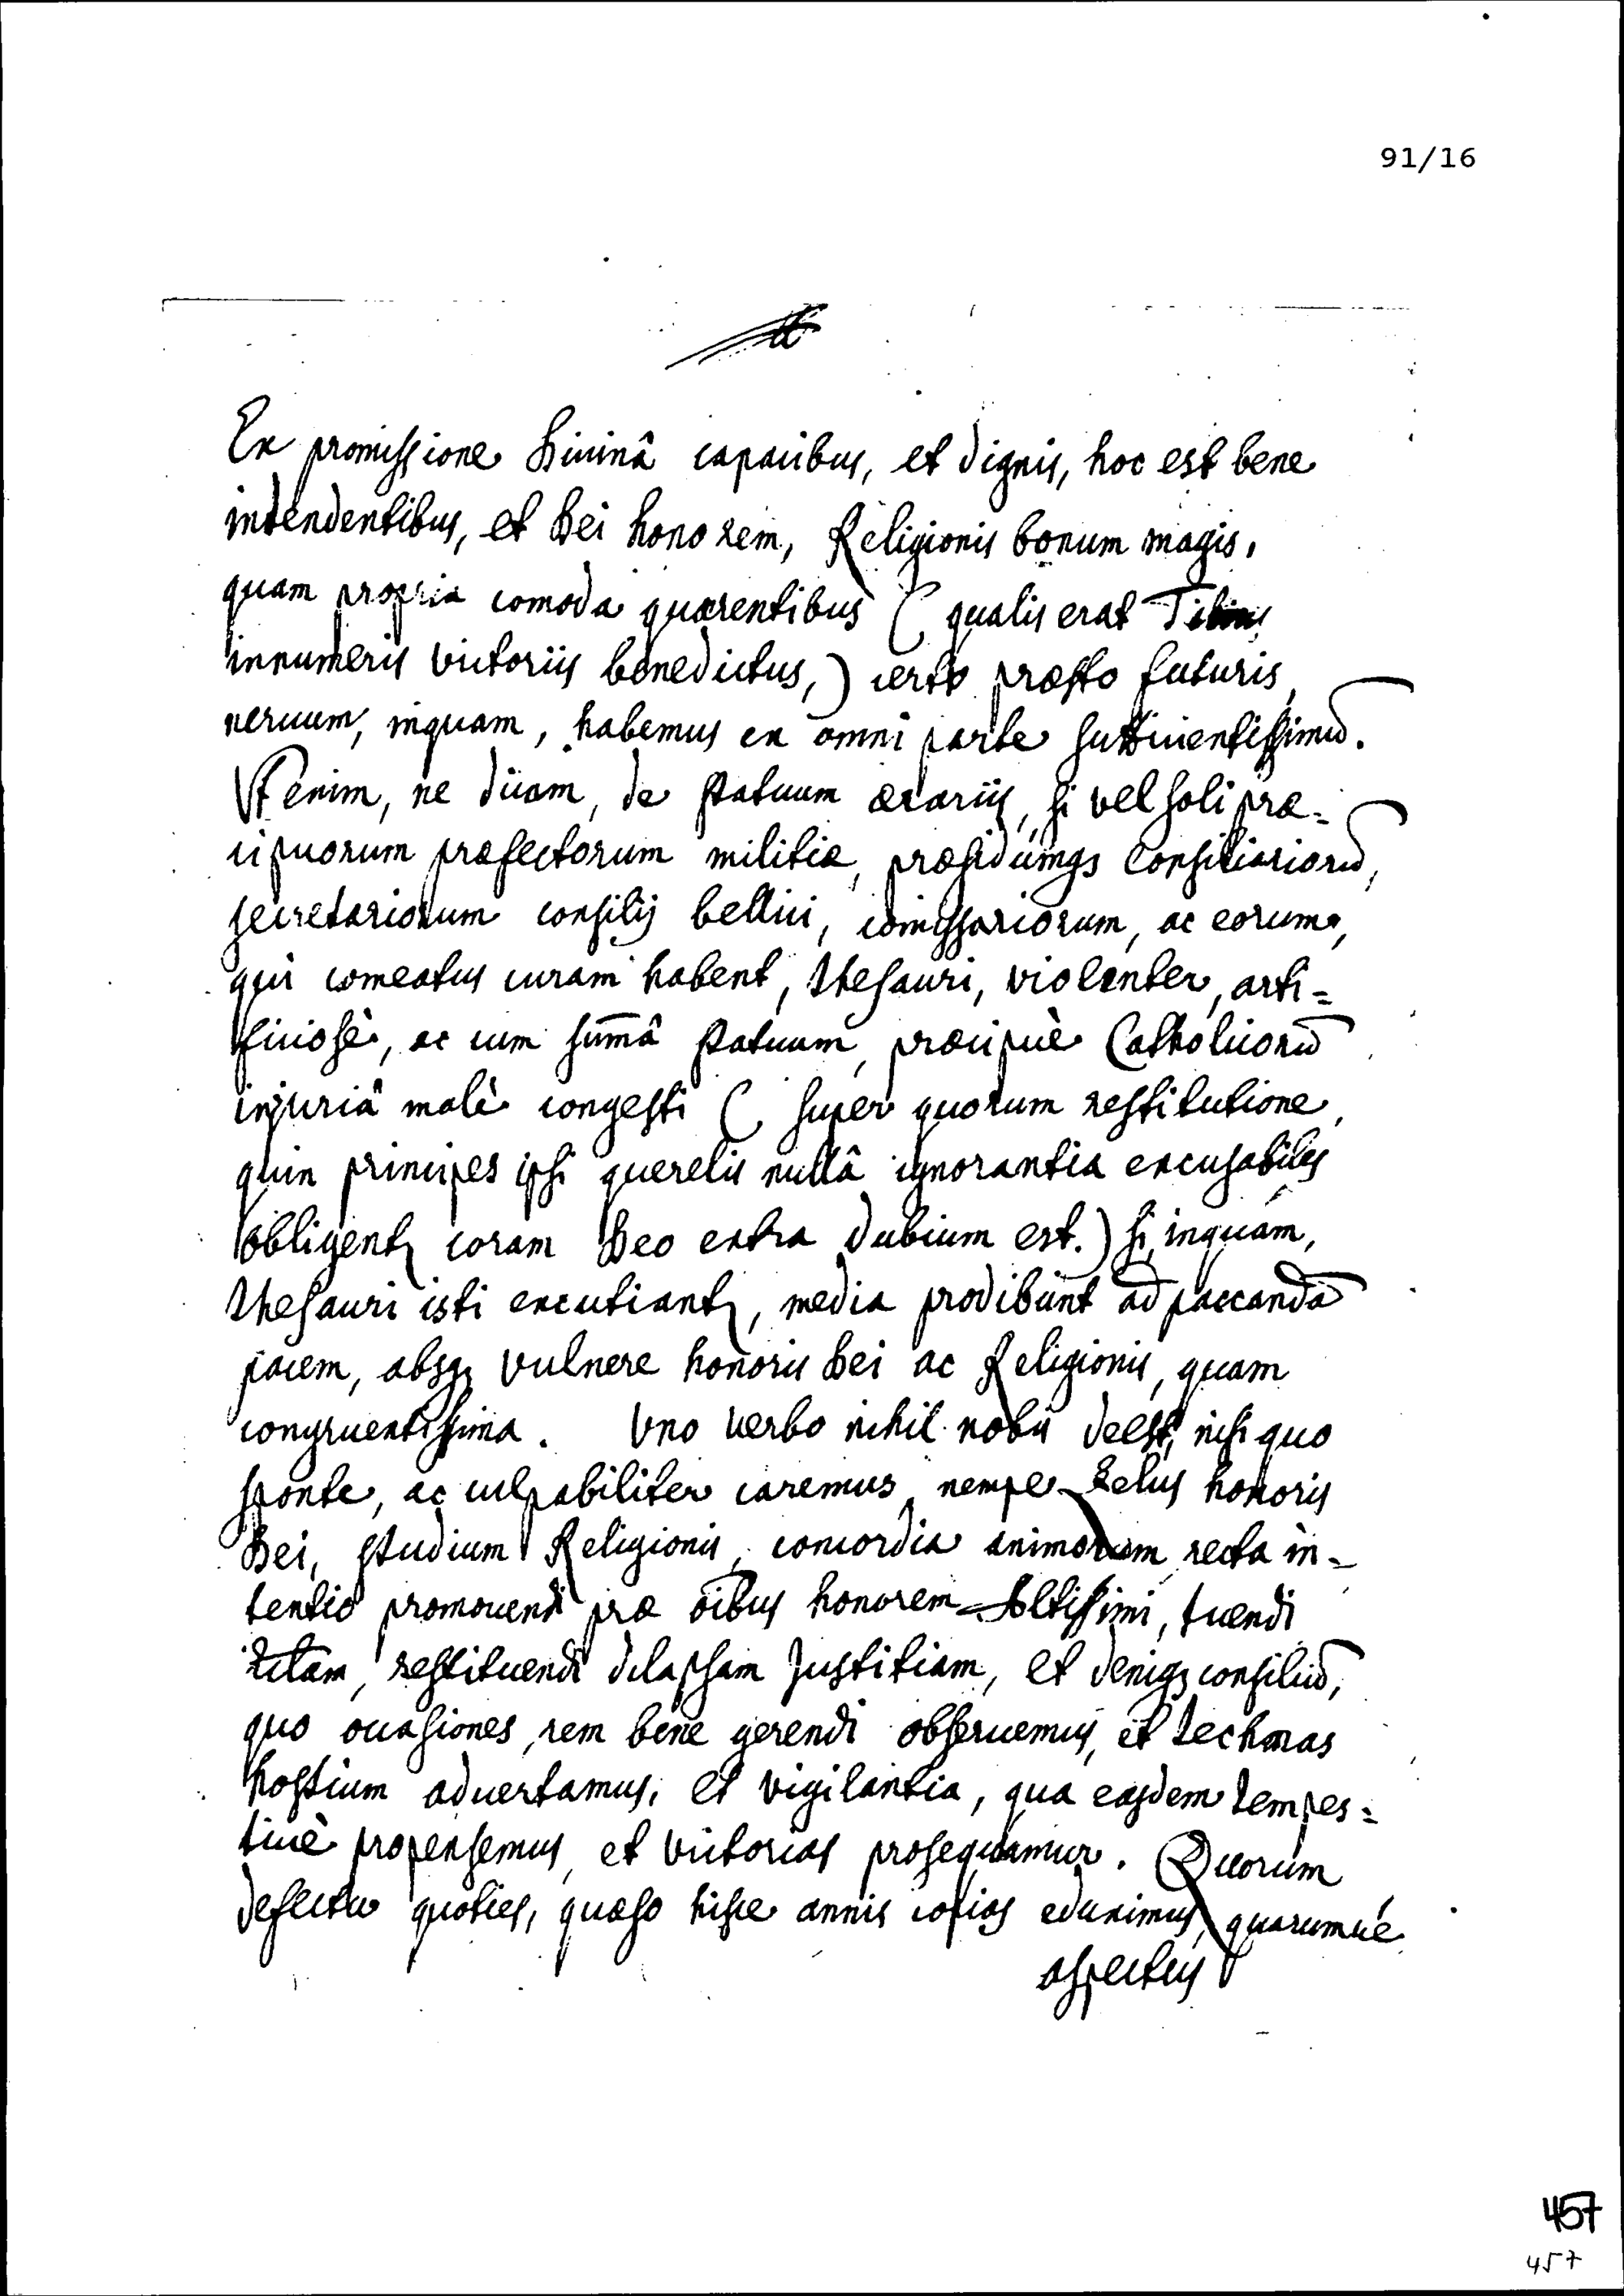 91/16
Ex promissione Diuinâ capacibus, et dignis, hoc est bene
intendentibus, et Dei honorem, Religionis bonum magis,
quam propria comoda quærentibus ( qualis erat
innumeris victoriis benedictus,) certo præsto futuris,
neruum, inquam, habemus ex omni parte sufficientissimū.
Vt enim, ne dicam, de statuum ærariis, si vel soli præ=
cipuorum præfectorum militiæ, præsidumqs Consiliariorū,
secretariorum consilij bellici, comissariorum, ac eorum,
qui comeatus curam habent, thesauri, violenter, arti=
ficiosè, ac cum sum̄â statuum, præcipuè Catholicorū
injuriâ malè congesti ( super quorum restitutione,
quin principes ipsi querelis nullâ ignorantia excusabiles
obligentꝛ coram Deo extra dubium est.) si, inquam,
thesauri isti excutiantꝛ, media prodibunt ad paccandā
pacem, absqꝫ vulnere honoris Dei ac Religionis, quam
congruentissima. Vno verbo nihil nobis deest, nisi quo
sponte, ac culpabiliter caremus, nempe Zelus honoris
Dei, studium Religionis, concordia animorum, recta in-
tentio promouendi præ oībus honorem Altissimi, tuendi
restituendi dilapsam Justitiam, et deniqꝫ consiliū,
quo occasiones rem bene gerendi obseruemus, et technas
hostium aduertamus, et vigilantia, qua easdem tempes=
tiuè propensemus, et victorias prosequamur. Quorum
defectu quoties, quæso hisce annis copias eduximus, quarumue
aspectus
457
457